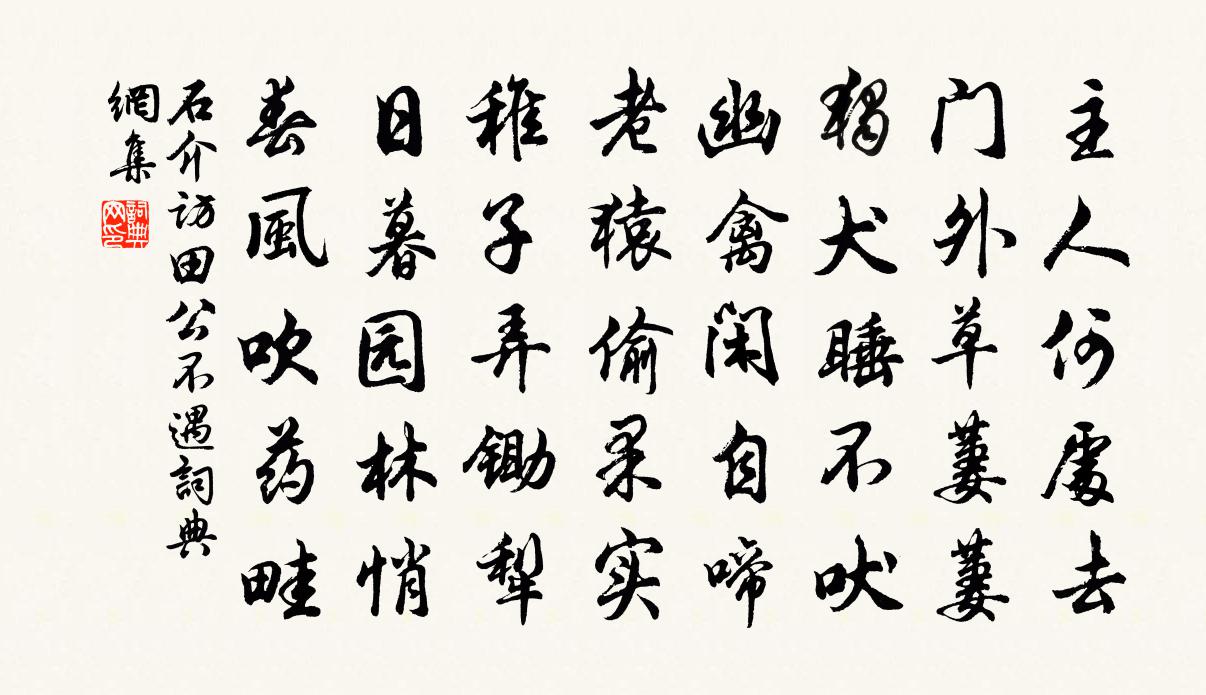 主人何處去
门外草萋萋
獨犬睡不吠
幽禽闲自啼
老猿偷果实
稚子弄鋤犁
日暮园林悄
春風吹药畦
石介訪田公不遇詞典
網集
詞典
网印